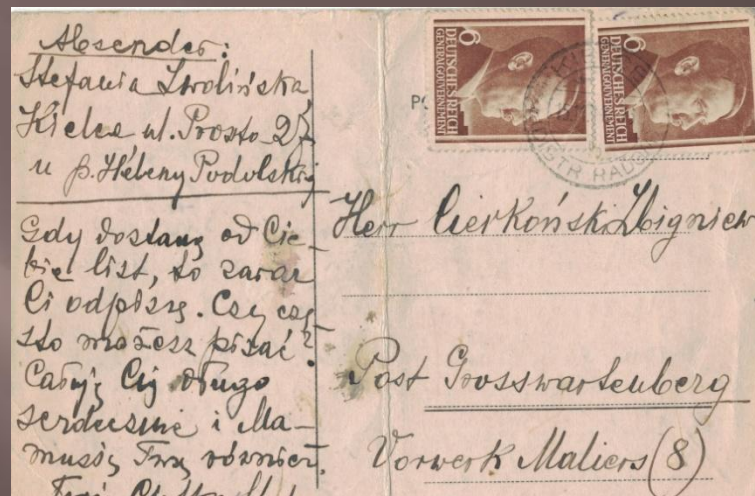 Absender:
Stefania Zwolińska
Kielce ul. Prosta 27
u p. Heleny Podolskiej
Gdy dostanę od Cie-
bie list, to zaraz
Ci odpiszę. Czy czę-
sto możesz pisać?
Całuję Cię długo
serdecznie i Ma-
musię Twą również.
6
DEUTSCHES REICH
GENERALGOUVERNEMENT
6
DEUTSCHES REICH
GENERALGOUVERNEMENT
Herr Cierkoński Zbigniew
Post Grosswartenberg
Vorwerk Maliers (8)